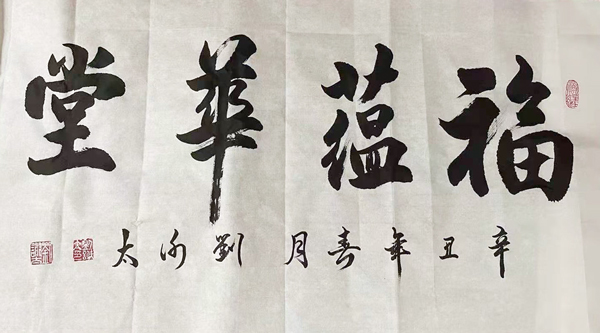 福蕴華堂
辛丑年春月劉太